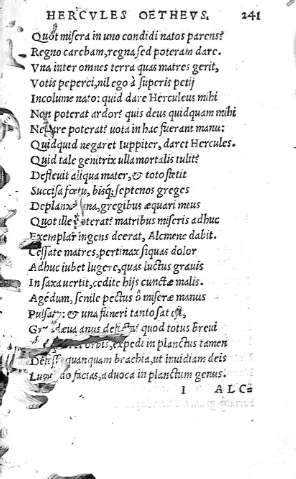 HERCVLES OETHEVS. 241
Quot misera in uno condidi natos parens?
Regno carebam, regna sed poteram dare.
Vna inter omnes terra quas matres gerit,
Votis peperci, nil ego à superis petij
Incolume nato: quid dare Herculeus mihi
Non poterat ardor? quis deus quidquam mihi
Negare poterat? uota in hac fuerant manu:
Quidquid negaret Iuppiter, daret Hercules.
Quid tale genitrix ulla mortalis tulit?
Defleuit aliqua mater, & toto stetit
Succisa foetu, bisq; septenos greges
Deplanxit una, gregibus æquari meus
Quot ille poterat? matribus miseris adhuc
Exemplar ingens deerat, Alcmene dabit.
Cessate matres, pertinax si quas dolor
Adhuc iubet lugere, quas luctus grauis
In saxa uertit, cedite hijs cunctæ malis.
Agedum, senile pectus ô miseræ manus
Pulsate: & una funeri tanto sat est,
anus defectaq; quod totus breui
orbis, expedi in planctus tamen
quanquam brachia, ut inuidiam deis
do facias, aduoca in planctum genus.
I ALC